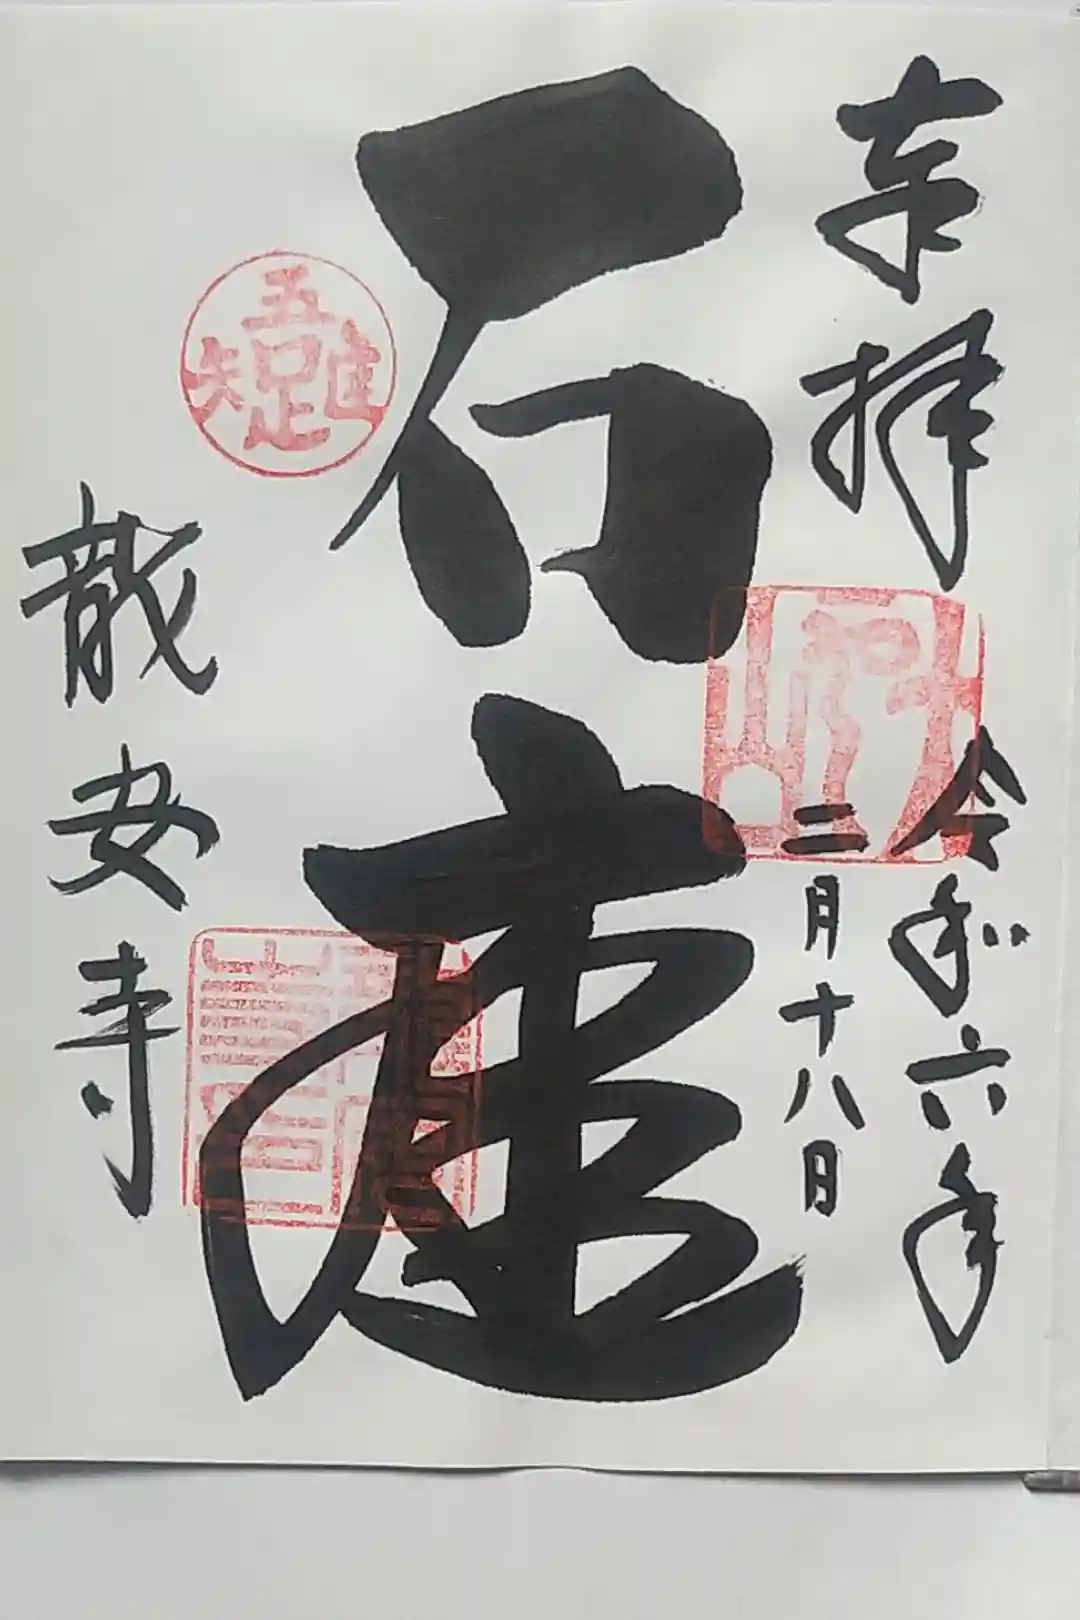 奉拝
令和六年
二月十八日
石庭
龍安寺
吾唯足知